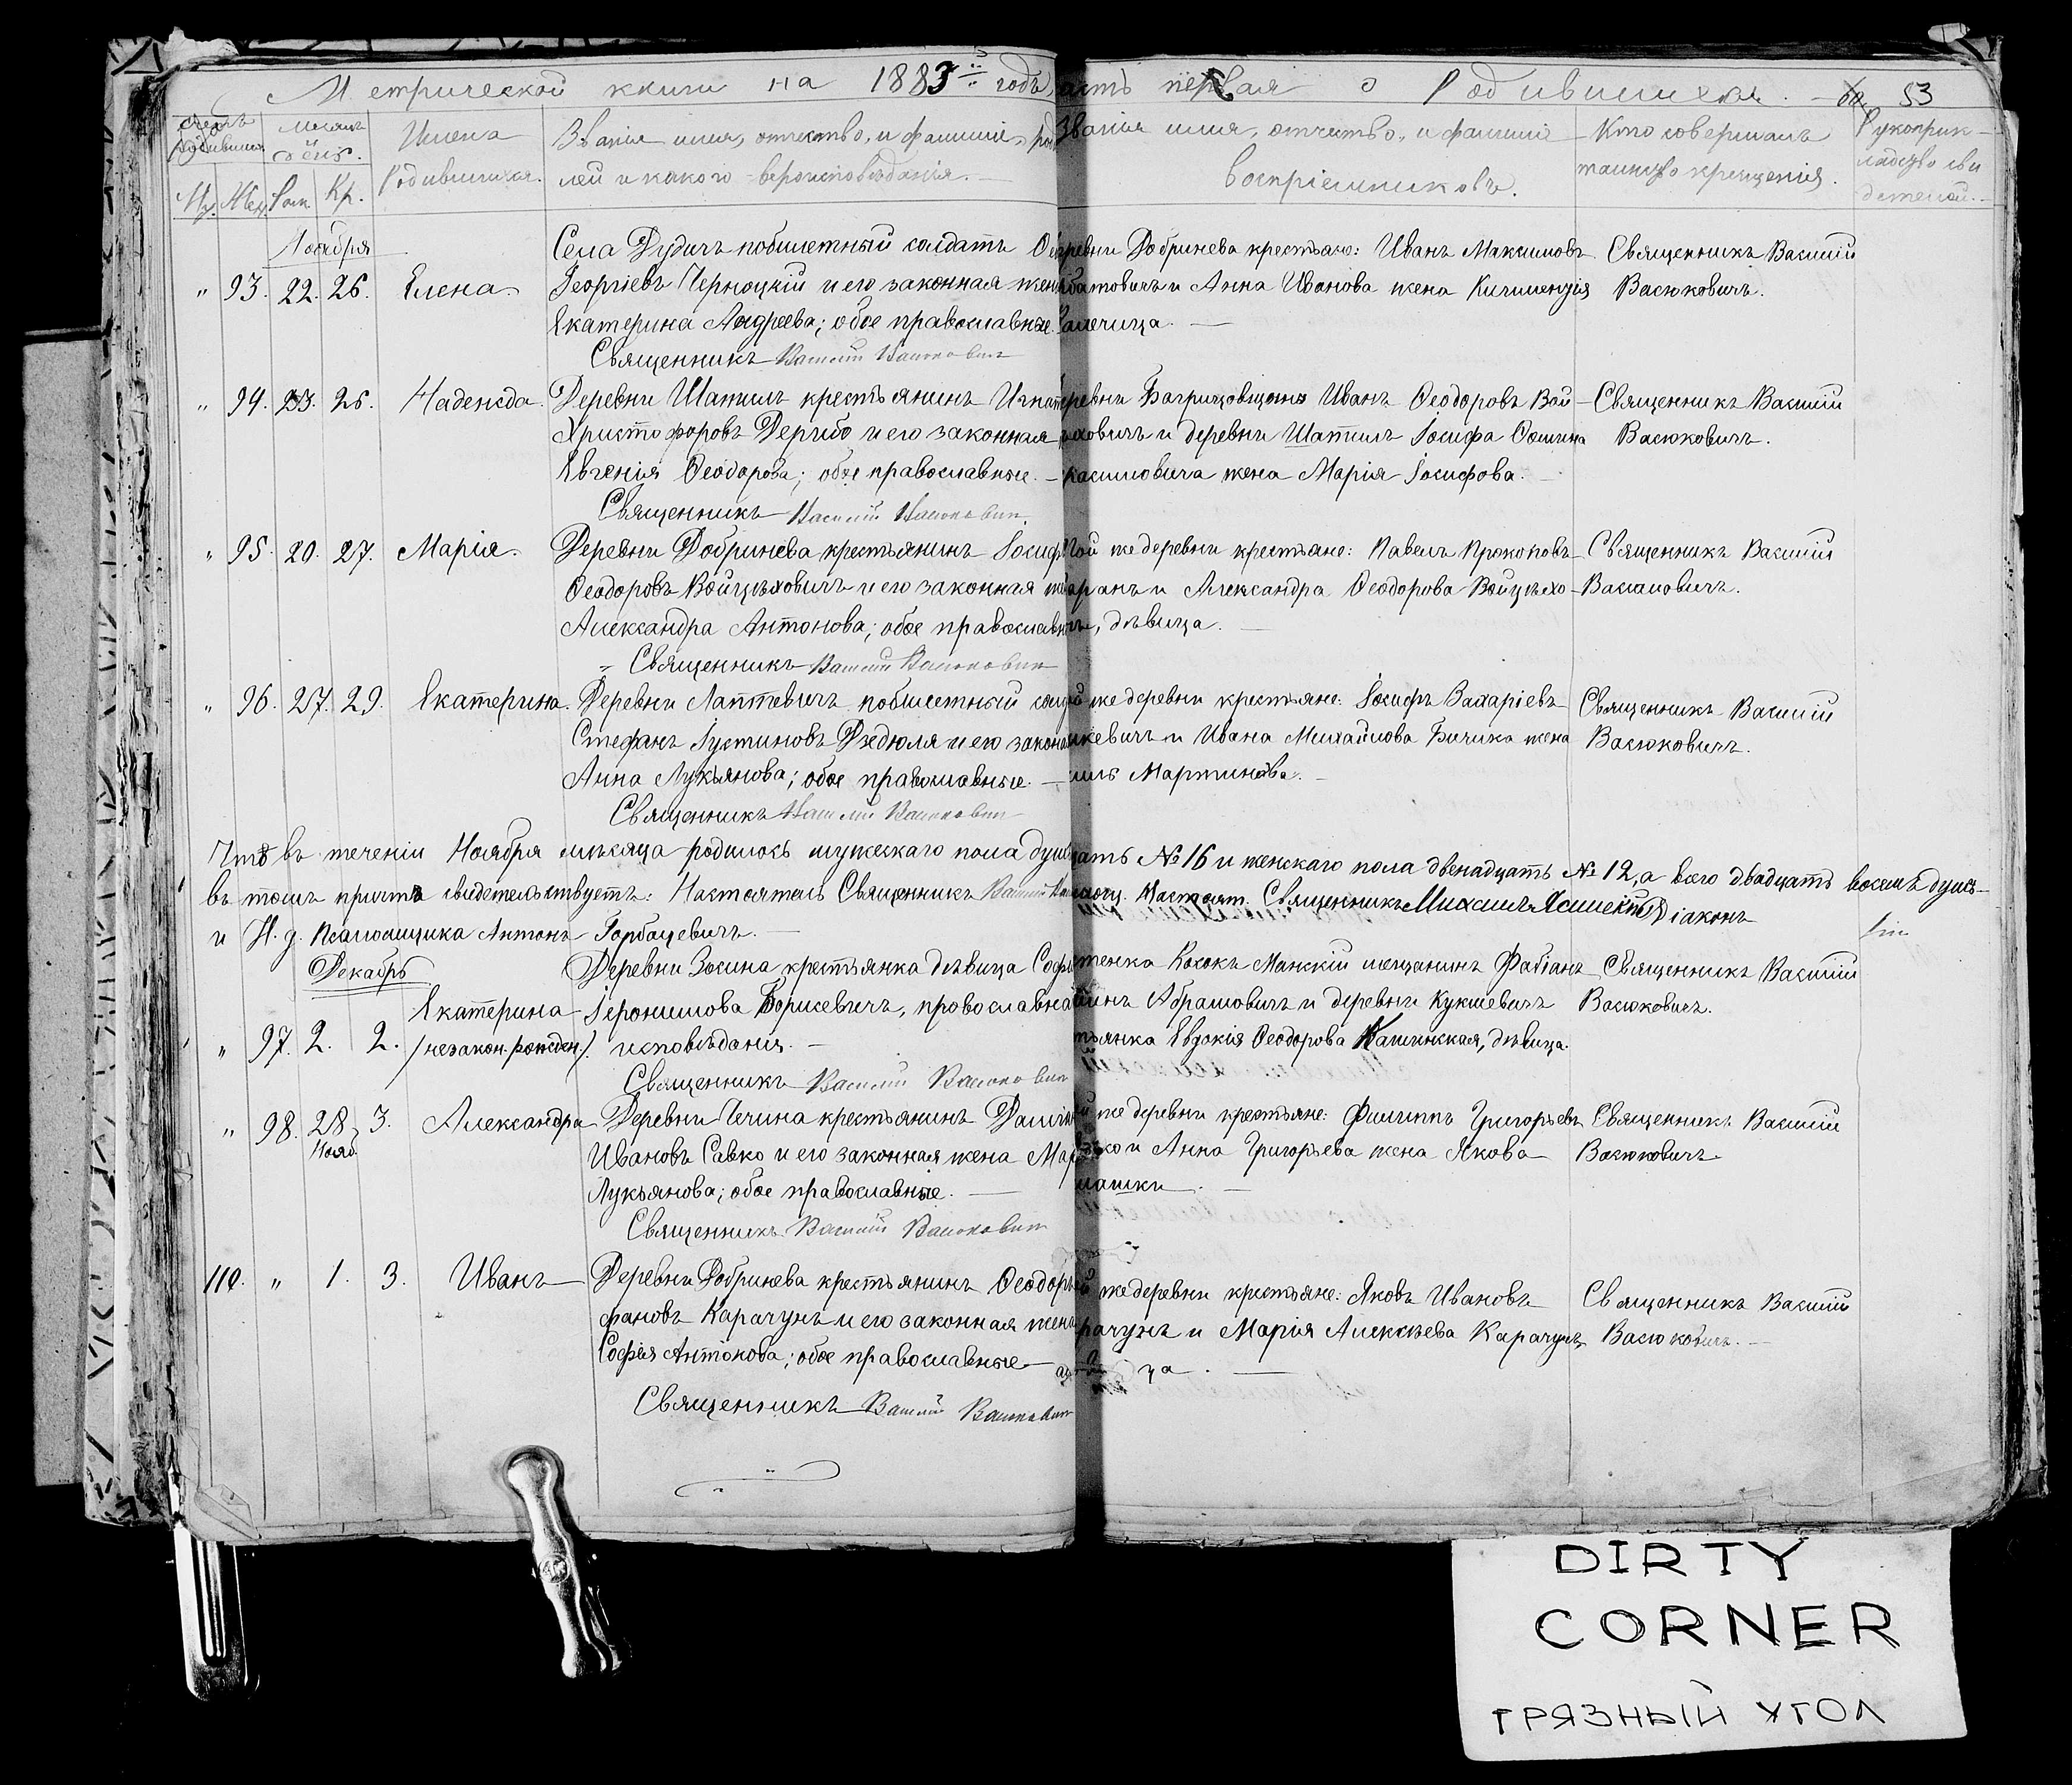 Метрической книги на 1883 годъ
асть первая о Родившихся. 53
Счетъ родившихся
Месяцъ и день.
Имена родившихся.
Званіе имя, отчество, и фамиліе, роди
лей и какого вероисповѣданія.
Званіе имя, отчество, и фамиліе
воспріемниковъ.
Кто совершалъ
таинство крещенія.
Рукоприк-
ладство сви
детелей.
Му. Жен. Рож. Кр.
Ноября
" 93. 22. 26. Елена.
Села Дудичъ побилетный солдатъ
Георгіевъ Черноцкій и его законная жена
Екатерина Андреева; обое православные.
Священникъ Василій Васюковичъ
ревни Добринева крестьяне: Иванъ Максимовъ
батовичъ и Анна Иванова жена
Священникъ Василій
Васюковичъ.
" 94. 23. 26. Надежда.
Деревни Шатилъ крестьянинъ Игнат
Христофоровъ Дергибо и его законная
Евгенія Ѳеодорова; обое православные.
Священникъ Василій Васюковичъ.
ревни Багрицовщины Иванъ Ѳеодоровъ Вой-
ховичъ и деревни Шатилъ Іосифа Ѳомина
касиловича жена Марія Іосифова.
Священникъ Василій
Васюковичъ.
" 95. 20. 27. Марія.
Деревни Добринева крестьянинъ Іосиф
Ѳеодоровъ Войцѣховичъ и его законная же
Александра Антонова; обое православн
Священникъ Василій Васюковичъ
той же деревни крестьяне: Павелъ Прокоповъ
аранъ и Александра Ѳеодорова Войцѣхо-
чъ, дѣвица.
Священникъ Василій
Васюковичъ.
" 96. 27. 29. Екатерина.
Деревни Лаптевичъ побилетный солд
Стефанъ Іустиновъ Дзедюля и его закона
Анна Лукьянова; обое православные.
Священникъ Василій Васюковичъ
же деревни крестьяне: Іосифъ Захаріевъ
кевичъ и Ивана Михайлова Бичика жена
Мартинова.
Священникъ Василій
Васюковичъ.
Что въ теченіи Ноября мѣсяца родилось мужескаго пола душъ
ать №16 и женскаго пола двенадцать №12, а всего двадцать восемь душъ-
въ томъ причтъ свидетельствуетъ: Настоятель Священникъ Василій
Настоят. Священникъ Михаилъ Діаконъ
и И. д. Псаломщика Антонъ Горбацевичъ.
Декабрь
" 97. 2. 2. Екатерина /незакон. рожден./
Деревни Зосина крестьянка дѣвица Софі
Іеронимова Борисевичъ, провославна
исповѣданія.
Священникъ Василій Васюковичъ
стенка Косокъ Манскій мещанинъ Фабіанъ
инъ Абрамовичъ и деревни Кукшевичъ
тьянка Евдокія Ѳеодорова Камінская, дѣвица.
Священникъ Василій
Васюковичъ.
" 98. 28 Нояб. 3. Александра
Деревни Чечина крестьянинъ Даміан
Ивановъ Савко и его законная жена Мар
Лукьянова; обое православные.
Священникъ Василій Васюковичъ
й же деревни крестьяне: Филиппъ Григорьевъ
ко и Анна Григорьева жена Якова
машки.
Священникъ Василій
Васюковичъ
110. " 1. 3. Иванъ
Деревни Добринева крестьянинъ Ѳеодоръ
фановъ Карачунъ и его законная жена
Софья Антонова; обое православные
Священникъ Василій Васюковичъ
й же деревни крестьяне: Яковъ Ивановъ
рачунъ и Марія Алексѣева Карачунъ
ца.
Священникъ Василій
Васюковичъ.
DIRTY
CORNER
ГРЯЗНЫЙ УГОЛ